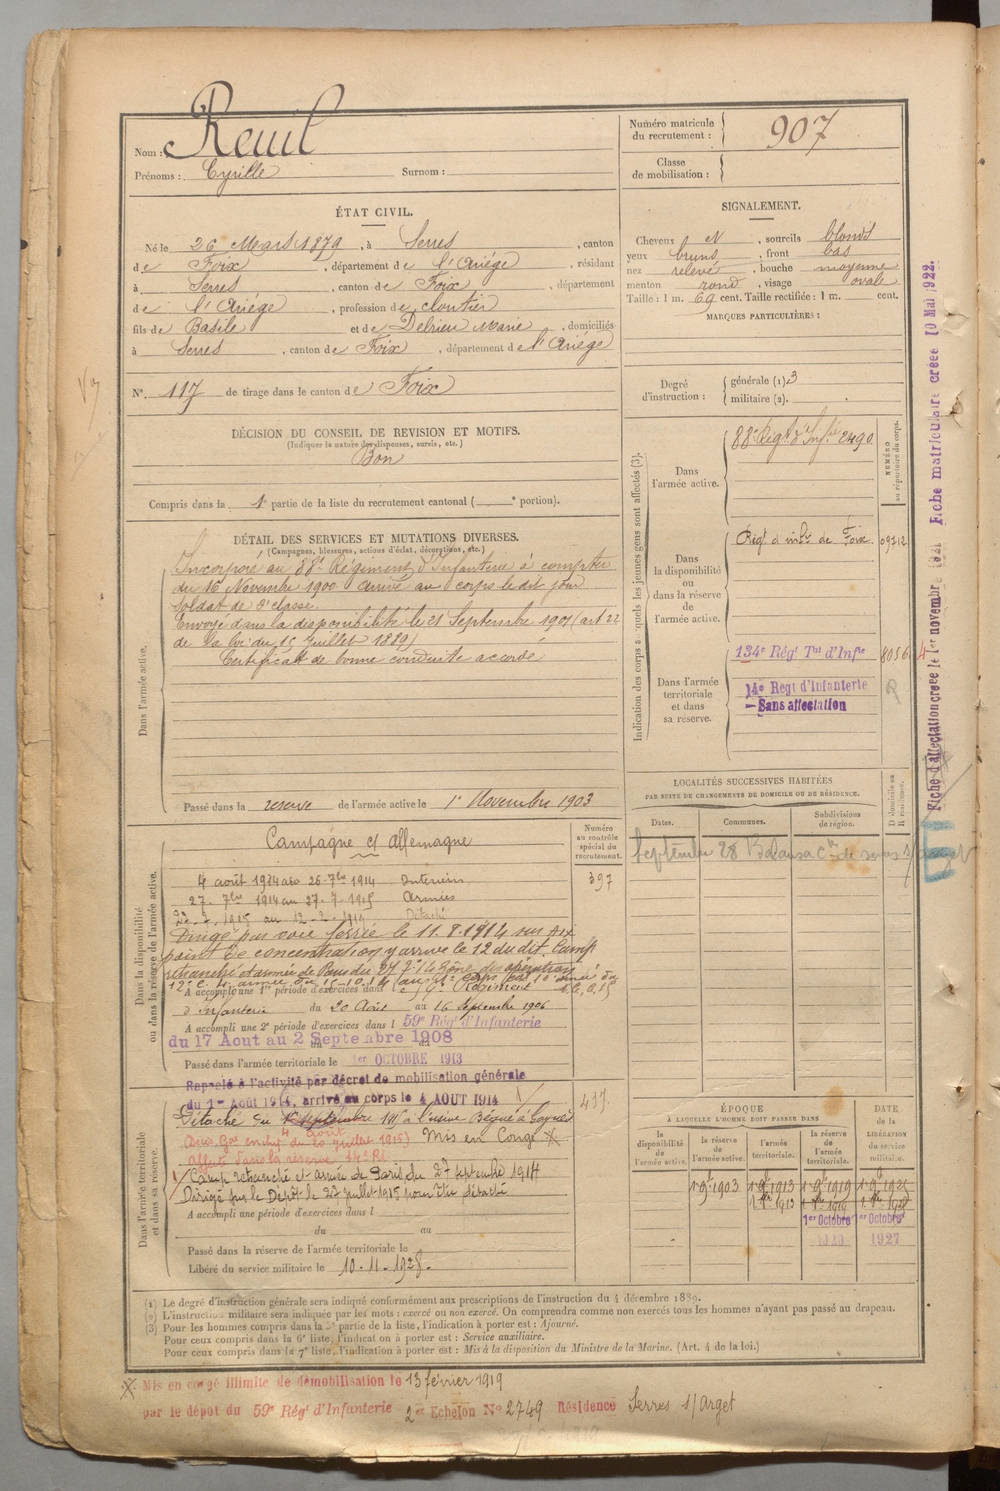 Nom : Reuil
Prénoms : Cyrille Surnom :
Numéro matricule du recrutement : 907
Classe de mobilisation :
ÉTAT CIVIL.
Né le 26 Mars 1879, à Serres, canton
de Foix, département de l'Ariége, résidant
à Serres, canton de Foix, département
de l'Ariége, profession de cloutier
fils de Basile et de Delrieu Marie, domiciliés
à Serres, canton de Foix, département de l'Ariége
N° 117 de tirage dans le canton de Foix
SIGNALEMENT.
Cheveux N, sourcils blonds
yeux bruns, front bas
nez relevé, bouche moyenne
menton rond, visage ovale
Taille : 1 m. 69 cent. Taille rectifiée : 1 m. cent.
MARQUES PARTICULIÈRES :
Degré d'instruction : générale (1) 3
militaire (2).
DÉCISION DU CONSEIL DE REVISION ET MOTIFS.
(Indiquer la nature des dispenses, sursis, etc.)
Bon
Compris dans la 1e partie de la liste du recrutement cantonal ( e portion).
DÉTAIL DES SERVICES ET MUTATIONS DIVERSES.
(Campagnes, blessures, actions d'éclat, décorations, etc.)
Dans l'armée active.
Incorporé au 88e Régiment d'Infanterie à compter
du 16 Novembre 1900 arrivé au corps le dit jour
soldat de 2e classe.
Envoyé dans la disponibilité le 21 Septembre 1901 (art 22
de la loi du 15 Juillet 1889)
Certificat de bonne conduite accordé
Passé dans la reserve de l'armée active le 1er Novembre 1903
Indication des corps auxquels les jeunes gens sont affectés (3).
NUMÉRO au répertoire du corps.
Dans l'armée active.
88e Régt d'Infie 2490
Dans la disponibilité ou dans la réserve de l'armée active.
Régt d'infie de Foix. 09712
Dans l'armée territoriale et dans sa réserve.
134e Régt Tal d'Infie 8056
14e Regt d'Infanterie
Sans affectation
Fiche d'affectation créée le 1er novembre 1921 Fiche matriculaire créée 10 Mai 1922.
LOCALITÉS SUCCESSIVES HABITÉES
PAR SUITE DE CHANGEMENTS DE DOMICILE OU DE RÉSIDENCE.
Dates. Communes. Subdivisions de région. D domicile ou R résidence.
Septembre 28
Dans la disponibilité ou dans la réserve de l'armée active.
Numéro au contrôle spécial du recrutement.
397
Campagne c/ Allemagne
4 août 1914 au 26-7bre 1914 Interieur
27-7bre 1914 au 27-7-1915 Armées
au 12-2-1919 Détaché
Dirigé par voie ferrée le 11.8.1914 sur
point de concentration y arrive le 12 du dit. Camp
retranché et armée de Paris du 27.7
A accompli une 1re période d'exercices dans Régiment
d'Infanterie du 20 Août au 16 Septembre 1906
A accompli une 2e période d'exercices dans l 59e Régt d'Infanterie
du 17 Aout au 2 Septembre 1908
Passé dans l'armée territoriale le 1er OCTOBRE 1913
Dans l'armée territoriale et dans sa réserve.
Rappelé à l'activité par décret de mobilisation générale
du 1er Août 1914, arrivé au corps le 4 AOUT 1914
417
Détaché du septembre à l'usine
juillet 1915) Mis en Congé X
Affecté dans la réserve 14e RI
Camp retranché et armée de Paris du 27 septembre 1914
Dirigé sur le Dépôt le 27 Juillet 1915 pour être détaché
A accompli une période d'exercices dans l
du au
Passé dans la réserve de l'armée territoriale le
Libéré du service militaire le 10-11-1928.
ÉPOQUE
À LAQUELLE L'HOMME DOIT PASSER DANS
DATE DE LA LIBÉRATION du service militaire.
la disponibilité de l'armée active. la réserve de l'armée active. l'armée territoriale. la réserve de l'armée territoriale.
1 9bre 1903 1 9bre 1913 1 9bre 1919
1er Octobre 1er Octobre
1927
(1) Le degré d'instruction générale sera indiqué conformément aux prescriptions de l'instruction du 4 décembre 1889.
(2) L'instruction militaire sera indiquée par les mots : exercé ou non exercé. On comprendra comme non exercés tous les hommes n'ayant pas passé au drapeau.
(3) Pour les hommes compris dans la 5e partie de la liste, l'indication à porter est : Ajourné.
Pour ceux compris dans la 6e liste, l'indication à porter est : Service auxiliaire.
Pour ceux compris dans la 7e liste, l'indication à porter est : Mis à la disposition du Ministre de la Marine. (Art. 4 de la loi.)
X Mis en congé illimité de démobilisation le 13 février 1919
par le dépôt du 59e Régt d'Infanterie 2e Echelon N° 2749 Résidence Serres s/ Arget